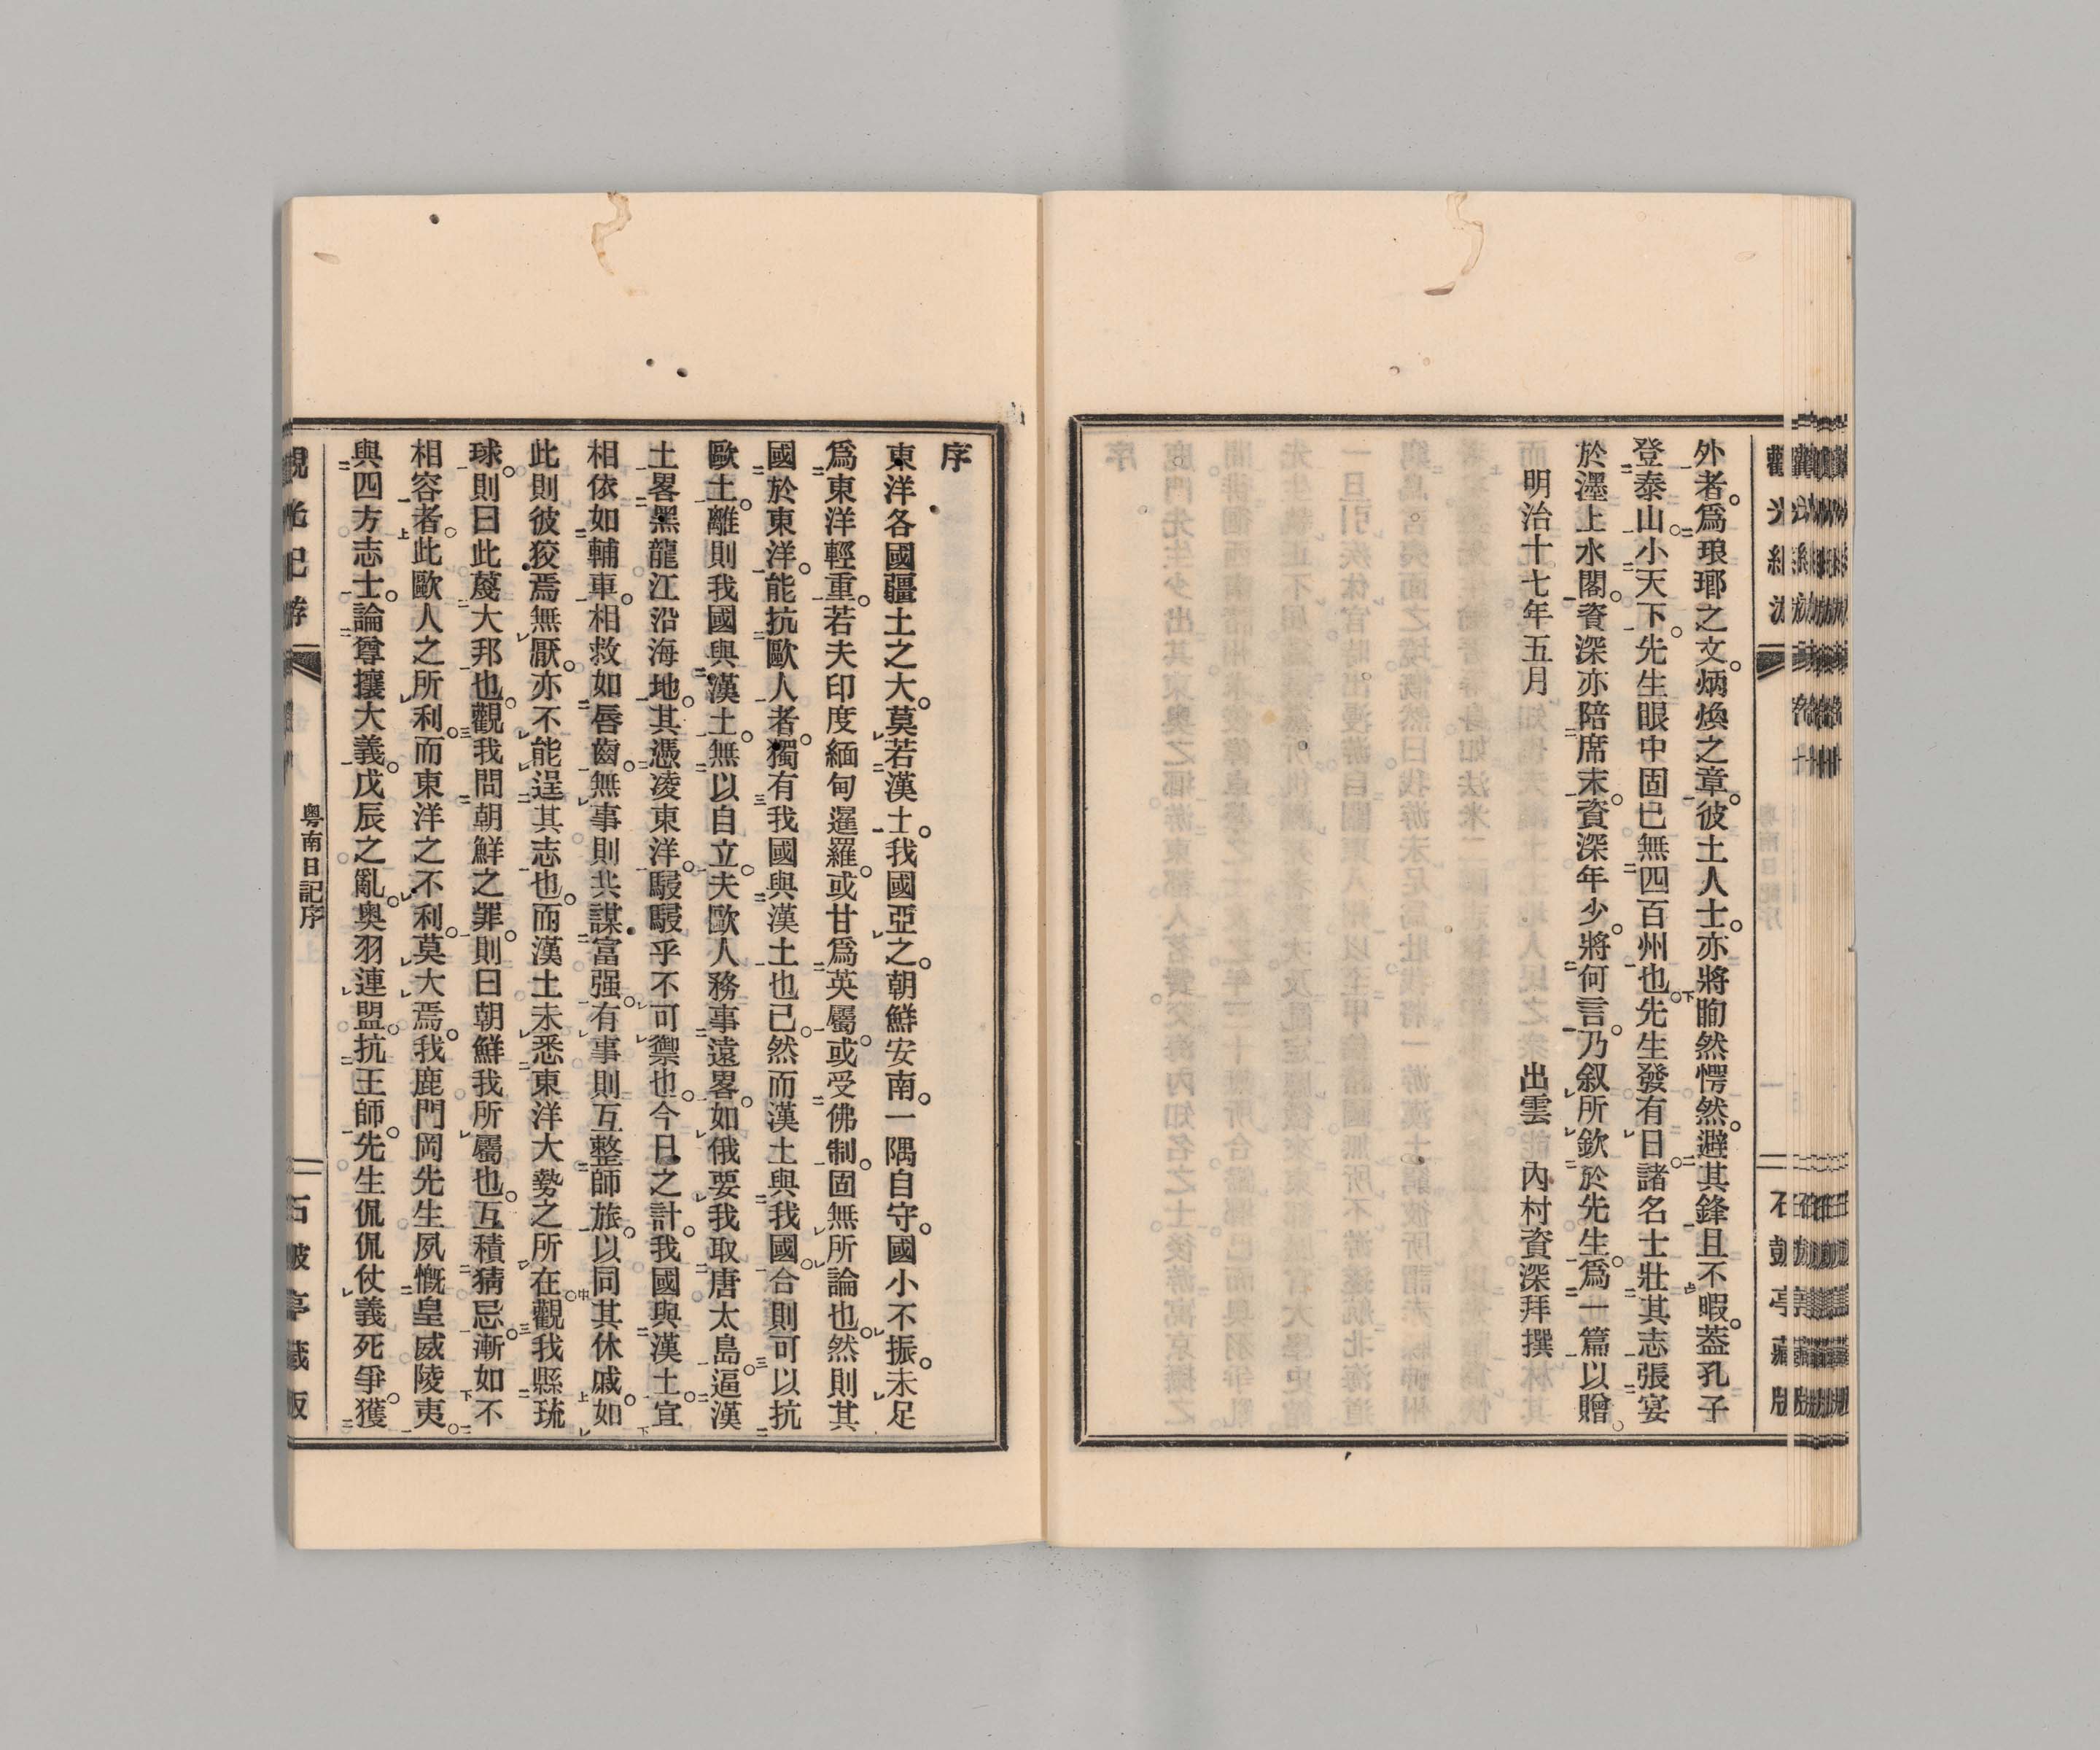 外者。爲琅瑘之文。炳煥之章。彼土人士。亦將眴然愕然。避其鋒且不暇。葢孔子
登泰山。小天下。先生眼中固已無四百州也。先生發有日。諸名士壯其志。張宴
於濹上水閣。資深亦陪席末。資深年少。將何言。乃叙所欽於先生。爲一篇以贈。
明治十七年五月　出雲　內村資深拜撰
序
東洋各國疆土之大。莫若漢土。我國亞之。朝鮮安南。一隅自守。國小不振。未足
爲東洋輕重。若夫印度緬甸暹羅。或甘爲英屬。或受佛制。固無所論也。然則其
國於東洋。能抗歐人者。獨有我國與漢土也已。然而漢土與我國。合則可以抗
歐土。離則我國與漢土。無以自立。夫歐人務事遠畧。如俄要我取唐太島。逼漢
土畧黑龍江沿海地。其憑凌東洋。駸駸乎不可禦也。今日之計。我國與漢土。宜
相依如輔車。相救如唇齒。無事則共謀富强。有事則互整師旅。以同其休戚。如
此則彼狡焉無厭。亦不能逞其志也。而漢土未悉東洋大勢之所在。觀我縣琉
球。則曰此蔑大邦也。觀我問朝鮮之罪。則曰朝鮮我所屬也。互積猜忌。漸如不
相容者。此歐人之所利。而東洋之不利。莫大焉。我鹿門岡先生夙慨皇威陵夷。
與四方志士。論尊攘大義。戊辰之亂。奧羽連盟。抗王師。先生侃侃仗義死爭。獲
粵南日記序